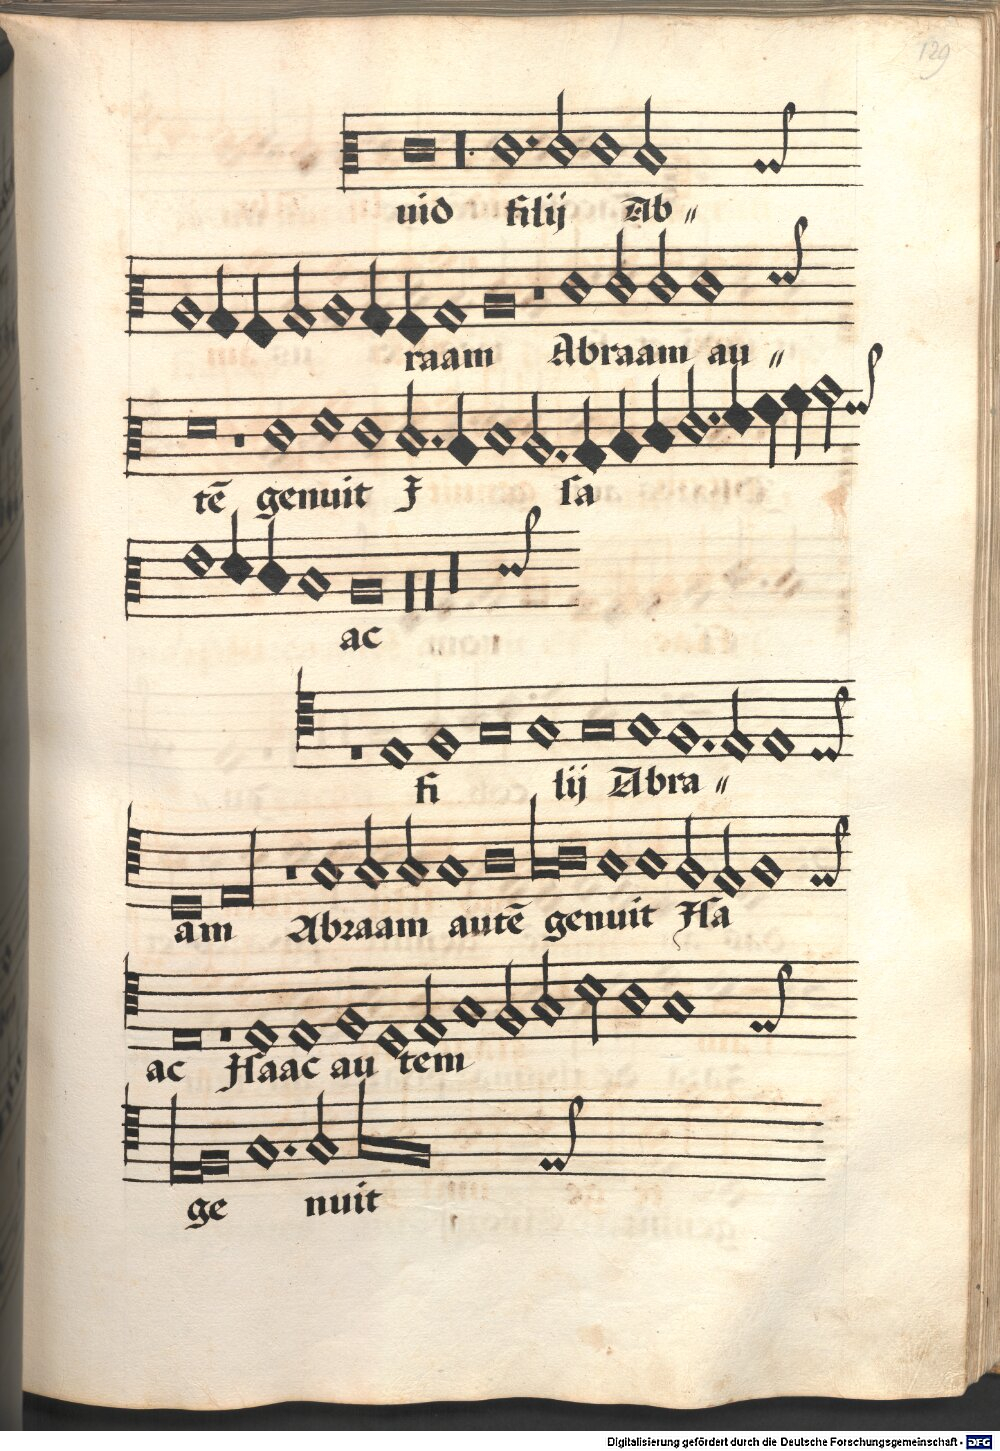 129
uid filij Ab〃
raam Abraam au〃
tē genuit I sa
ac
fi lij Abra〃
am Abraam autē genuit Isa
ac Isaac au tem
ge nuit
Digitalisierung gefördert durch die Deutsche Forschungsgemeinschaft - DFG